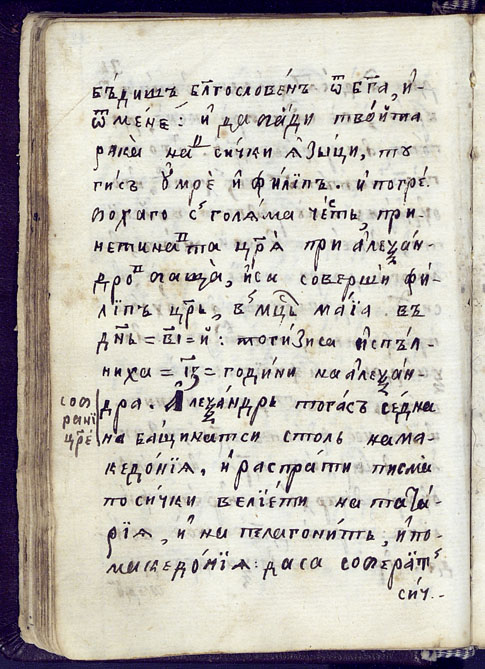 бъ́дишъ бл҃гословéнъ ѿ бг҃а, и҆-
ѿ менé: и҆ да ѡгáди твóйта
рака̀ надъ си́чки я҆зы́ци, тѹ
гисъ ѹ҆мрѐ и҆ фили́пъ. и҆ погре-
бохаго с голя́ма чéсть, при
нетината цр҃я̀ при а҆леѯáн-
дро ѡтаща̀, и҆са совершѝ фи-
ли́пъ цр҃ь, в мц҃ь мáїа въ
дн҃ь =ві= й: тоги́зиса и҆спъ́л-
ниха =із= годи́ни на а҆леѯáн-
дра. А҆леѯáндръ тогáсъ сéдна
на бащинатси столъ на ма-
кедóнїя, и҆ распрáти писма̀
по си́чки велїéти на татá-
рїя, и҆ на пелагони́тъ, и҆ по-
македóнїя: да са соберáтъ
сич..
собранїе
цр҃е